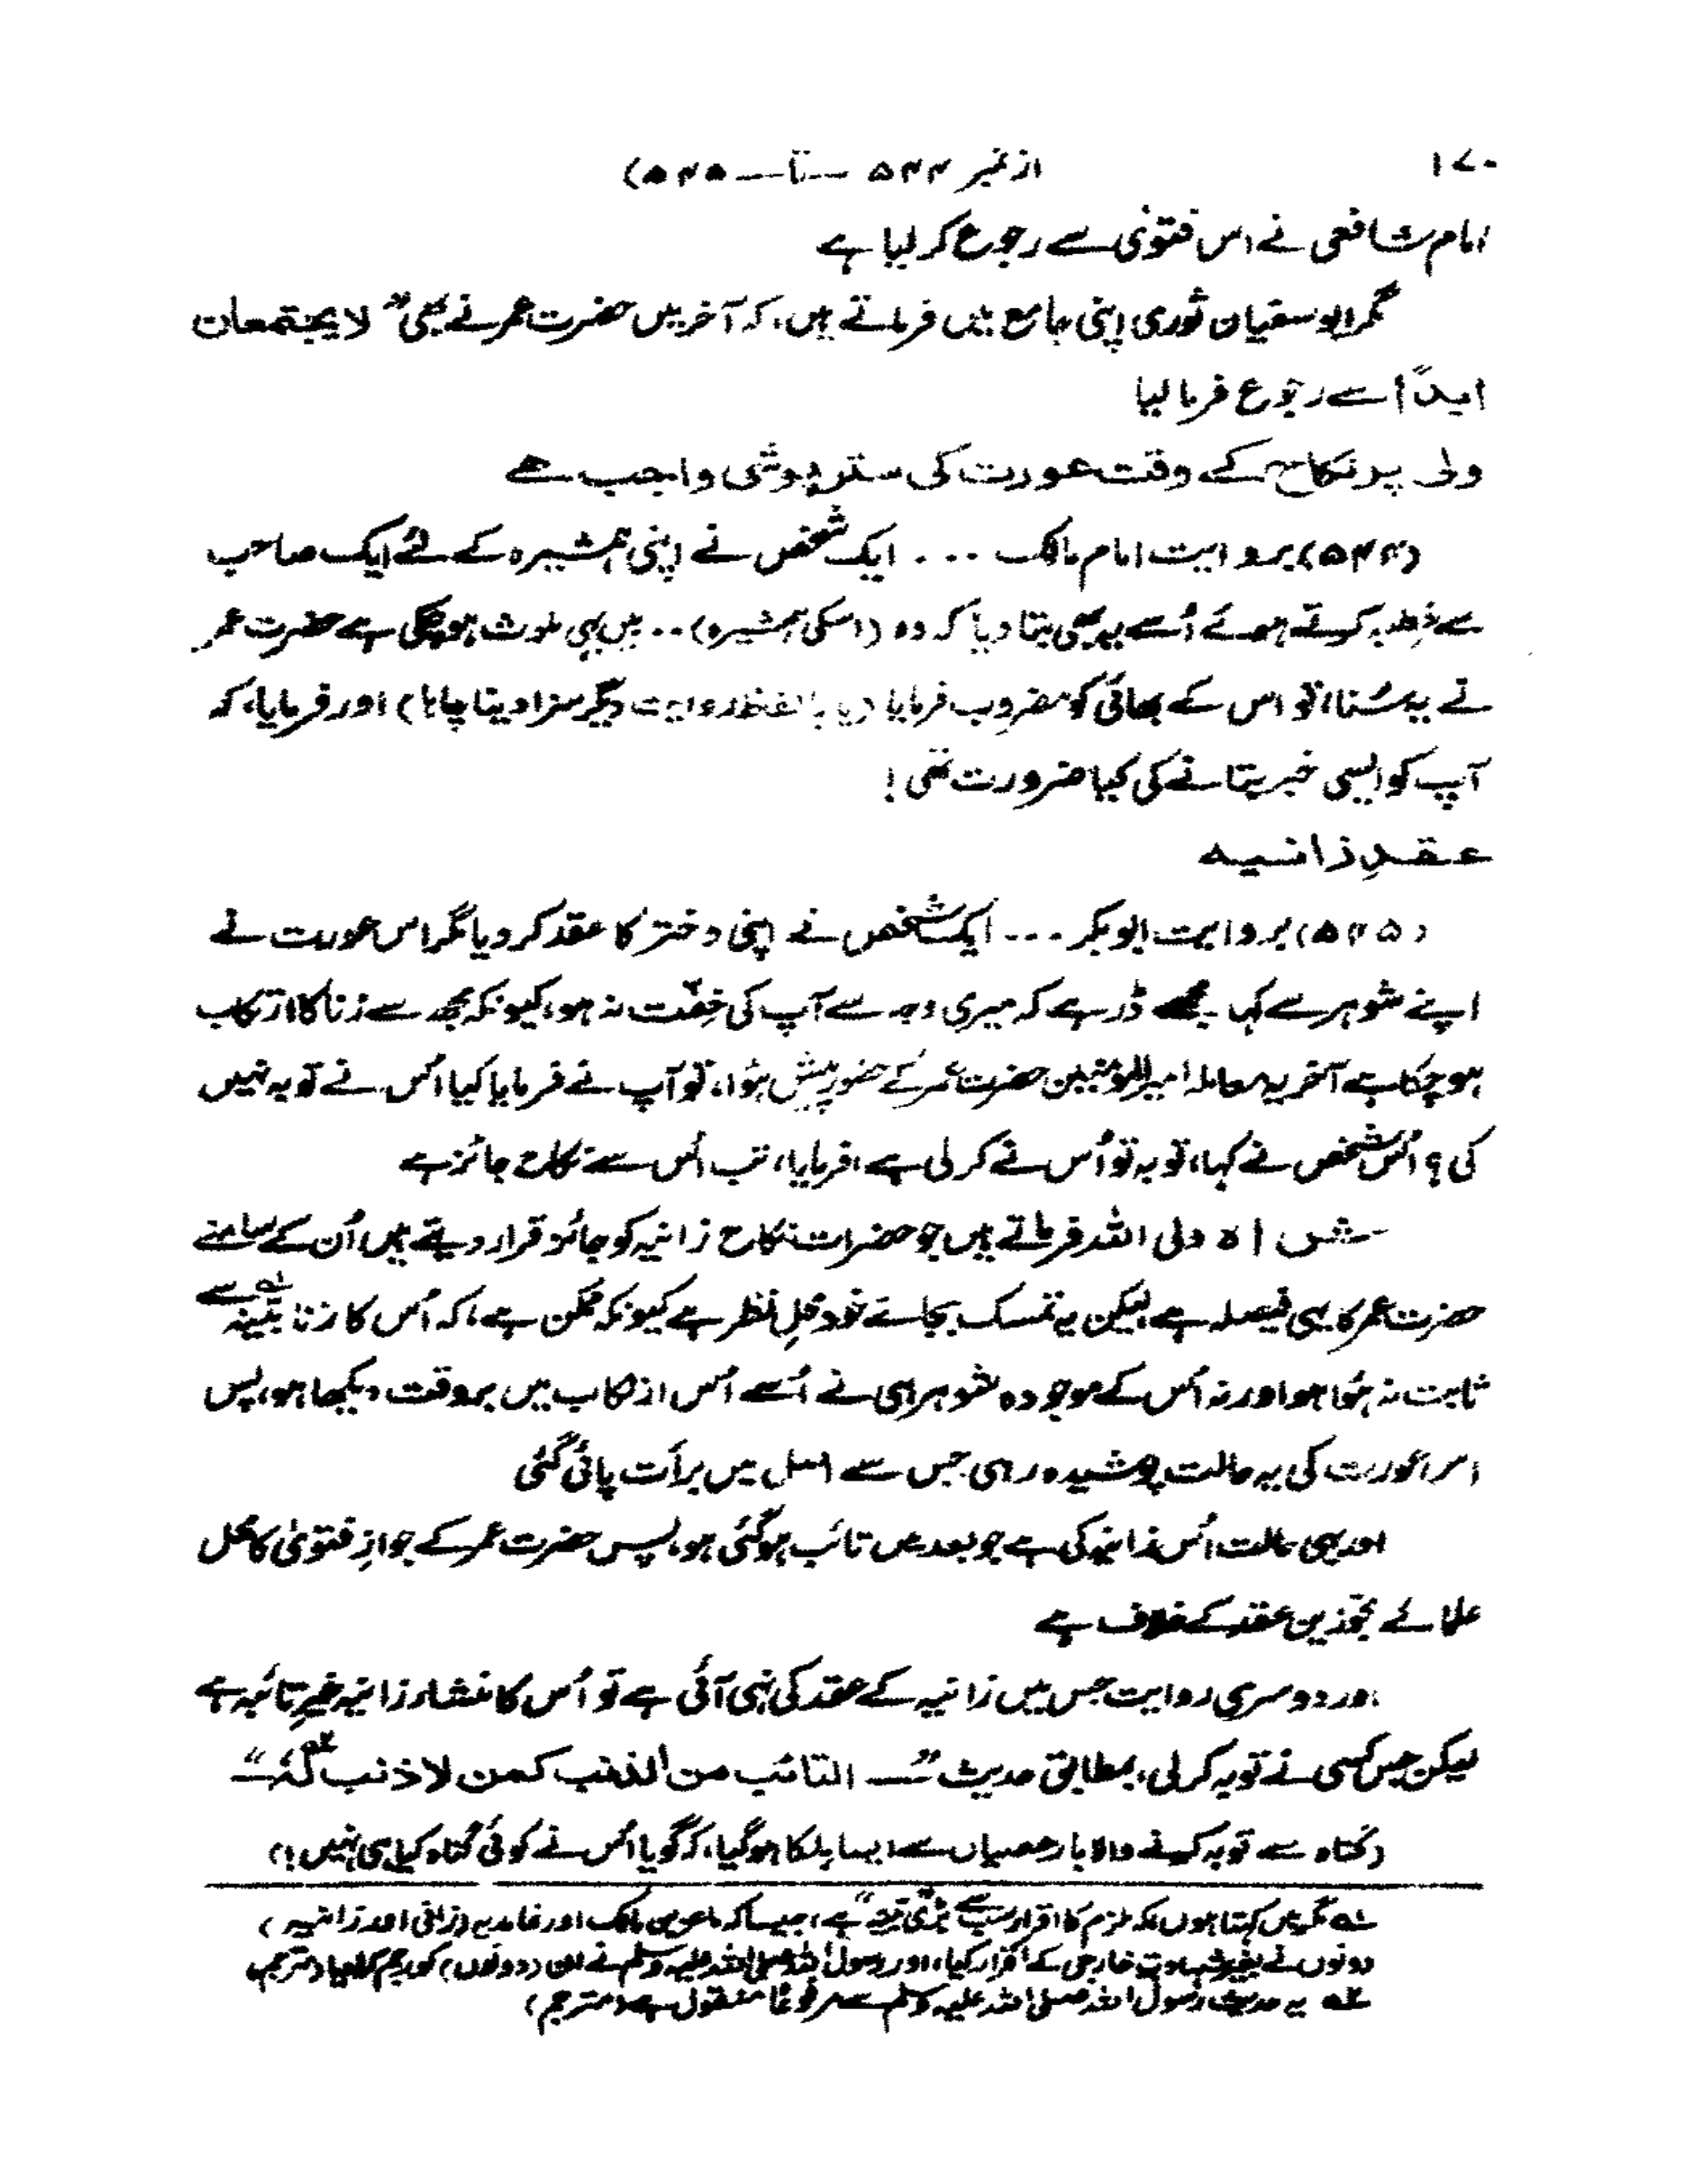 ۱۷۰
از نمبر ۵۴۴ — تا — ۵۴۵)
امام شافعی نے اس فتویٰ سے رجوع کر لیا ہے
مگر ابو سفیان ثوری اپنی جامع میں فرماتے ہیں، کہ آخر میں حضرت عمر نے بھی ”لا یجتمعان
ابداً“ سے رجوع فرما لیا
ولی پر نکاح کے وقت عورت کی ستر پوشی واجب ہے
(۵۴۴) بروایت امام مالک ... ایک شخص نے اپنی ہمشیرہ کے لئے ایک صاحب
سے خطبہ کرتے ہوئے اُسے یہ بھی بتا دیا کہ وہ (اسکی ہمشیرہ) .. میں بھی ملوث ہو چکی ہے حضرت عمر
نے یہ سُنا، تو اس کے بھائی کو مضروب فرمایا (یا بالفظ روایت دیگر سزا دینا چاہا) اور فرمایا، کہ
آپ کو ایسی خبر بتانے کی کیا ضرورت تھی!
عقدِ زانیہ
(۵۴۵) بروایت ابو بکر ... ایک شخص نے اپنی دختر کا عقد کر دیا مگر اس عورت نے
اپنے شوہر سے کہا مجھے ڈر ہے کہ میری وجہ سے آپ کی خِفّت نہ ہو، کیونکہ مجھ سے زنا کا ارتکاب
ہو چکا ہے آخر یہ معاملہ امیر المؤمنین حضرت عمر کے حضور پیش ہوُا، تو آپ نے فرمایا کیا اُس نے توبہ نہیں
کی؟ اُس شخص نے کہا، توبہ تو اُس نے کر لی ہے، فرمایا، تب اُس سے نکاح جائز ہے
شاہ ولی اللہ فرماتے ہیں جو حضرات نکاح زانیہ کو جائز قرار دیتے ہیں اُن کے سامنے
حضرت عمر کا یہی فیصلہ ہے لیکن یہ تمسک بجائے خود محلِ نظر ہے کیونکہ ممکن ہے، کہ اُس کا زنا بیّنہ؎۱ سے
ثابت نہ ہوُا ہو اور نہ اُس کے موجودہ شوہر ہی نے اُسے اُس ارتکاب میں بروقت دیکھا ہو، پس
اس عورت کی یہ حالت پوشیدہ رہی جس سے اصل میں برأت پائی گئی
اور یہی حالت اُس زانیہ کی ہے جو بعد میں تائب ہو گئی ہو، پس حضرت عمر کے جوازِ فتویٰ کا محل
علمائے مجوّزین عقد کے خلاف ہے
اور دوسری روایت جس میں زانیہ کے عقد کی نہی آئی ہے تو اُس کا منشاء زانیہ غیرِ تائبہ ہے
لیکن جس کسی نے توبہ کر لی، بمطابق حدیث ”— التائب من الذنب کمن لا ذنب لہٗ؎۲ —“
(گناہ سے توبہ کرنے والا بار عصیاں سے ایسا ہلکا ہو گیا، کہ گویا اُس نے کوئی گناہ کیا ہی نہیں!)
؎۱ مگر میں کہتا ہوں کہ ملزم کا اقرار سب سے بڑی ”بیّنہ“ ہے، جیسا کہ ماعز بن مالک اور غامدیہ (زانی اور زانیہ)
دونوں نے بغیر شہادتِ خارجی کے اقرار کیا، اور رسول اللہ صلی اللہ علیہ وسلم نے ان (دونوں) کو رجم کرا دیا (مترجم
؎۲ یہ حدیث رسول اللہ صلی اللہ علیہ وسلم سے مرفوعاً منقول ہے (مترجم)